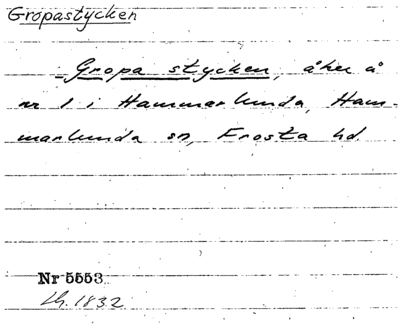 Gropastycken
Gropa stycken, åker å
nr 1 i Hammarlunda, Ham-
marlunda sn, Frosta hd.
Nr 5553
Lh. 1832